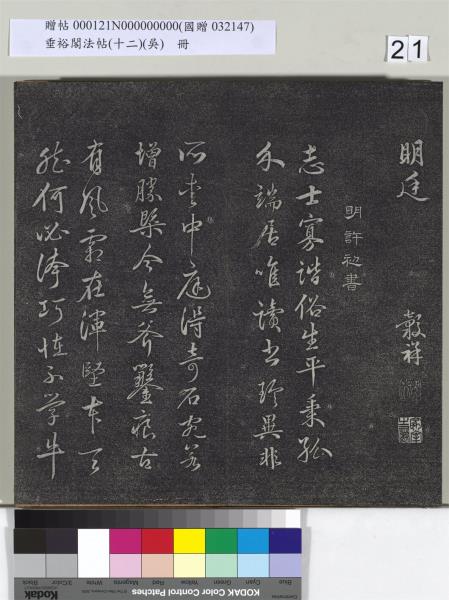 贈帖 000121N000000000(國贈 032147)
垂裕閣法帖(十二)(吳) 冊
21
明廷 穀祥
明許初書
志士寡諧俗生平秉孤
介端居唯讀書珍異非
所愛中庭得奇石宛若
增勝槩今無斧鑿痕古
有風霜在渾堅本天
然何必誇巧怪不學牛
KODAK Color Control Patches
Blue Cyan Green Yellow Red Magenta White 3/Color Black